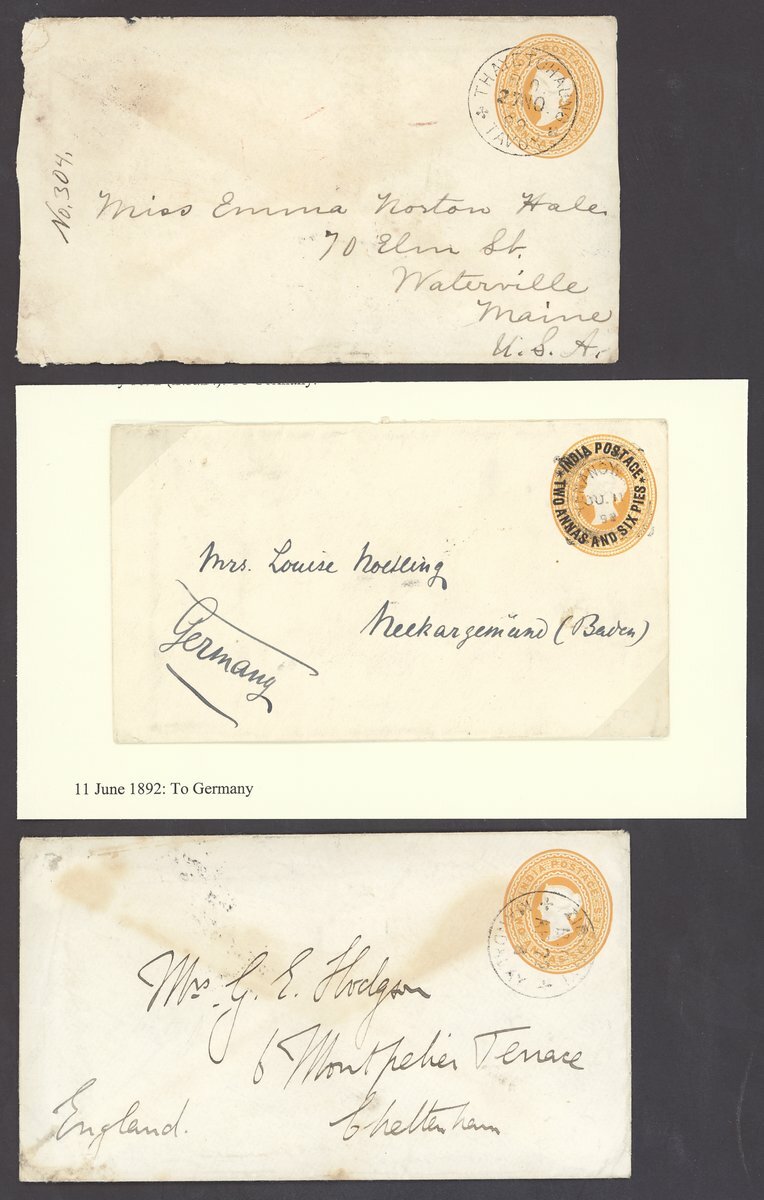 No. 304.
Miss Emma Norton Hale.
70 Elm St.
Waterville
Maine
U. S. A.
POSTAGE
TAVOY
27 NO
To Germany.
INDIA POSTAGE
TWO ANNAS AND SIX PIES
JU. 11
92
Mrs. Louise Noetling
Neckargemünd (Baden)
Germany
11 June 1892: To Germany
INDIA POSTAGE
Mrs. G. E. Hodgson
6 Montpelier Terrace
Cheltenham
England.